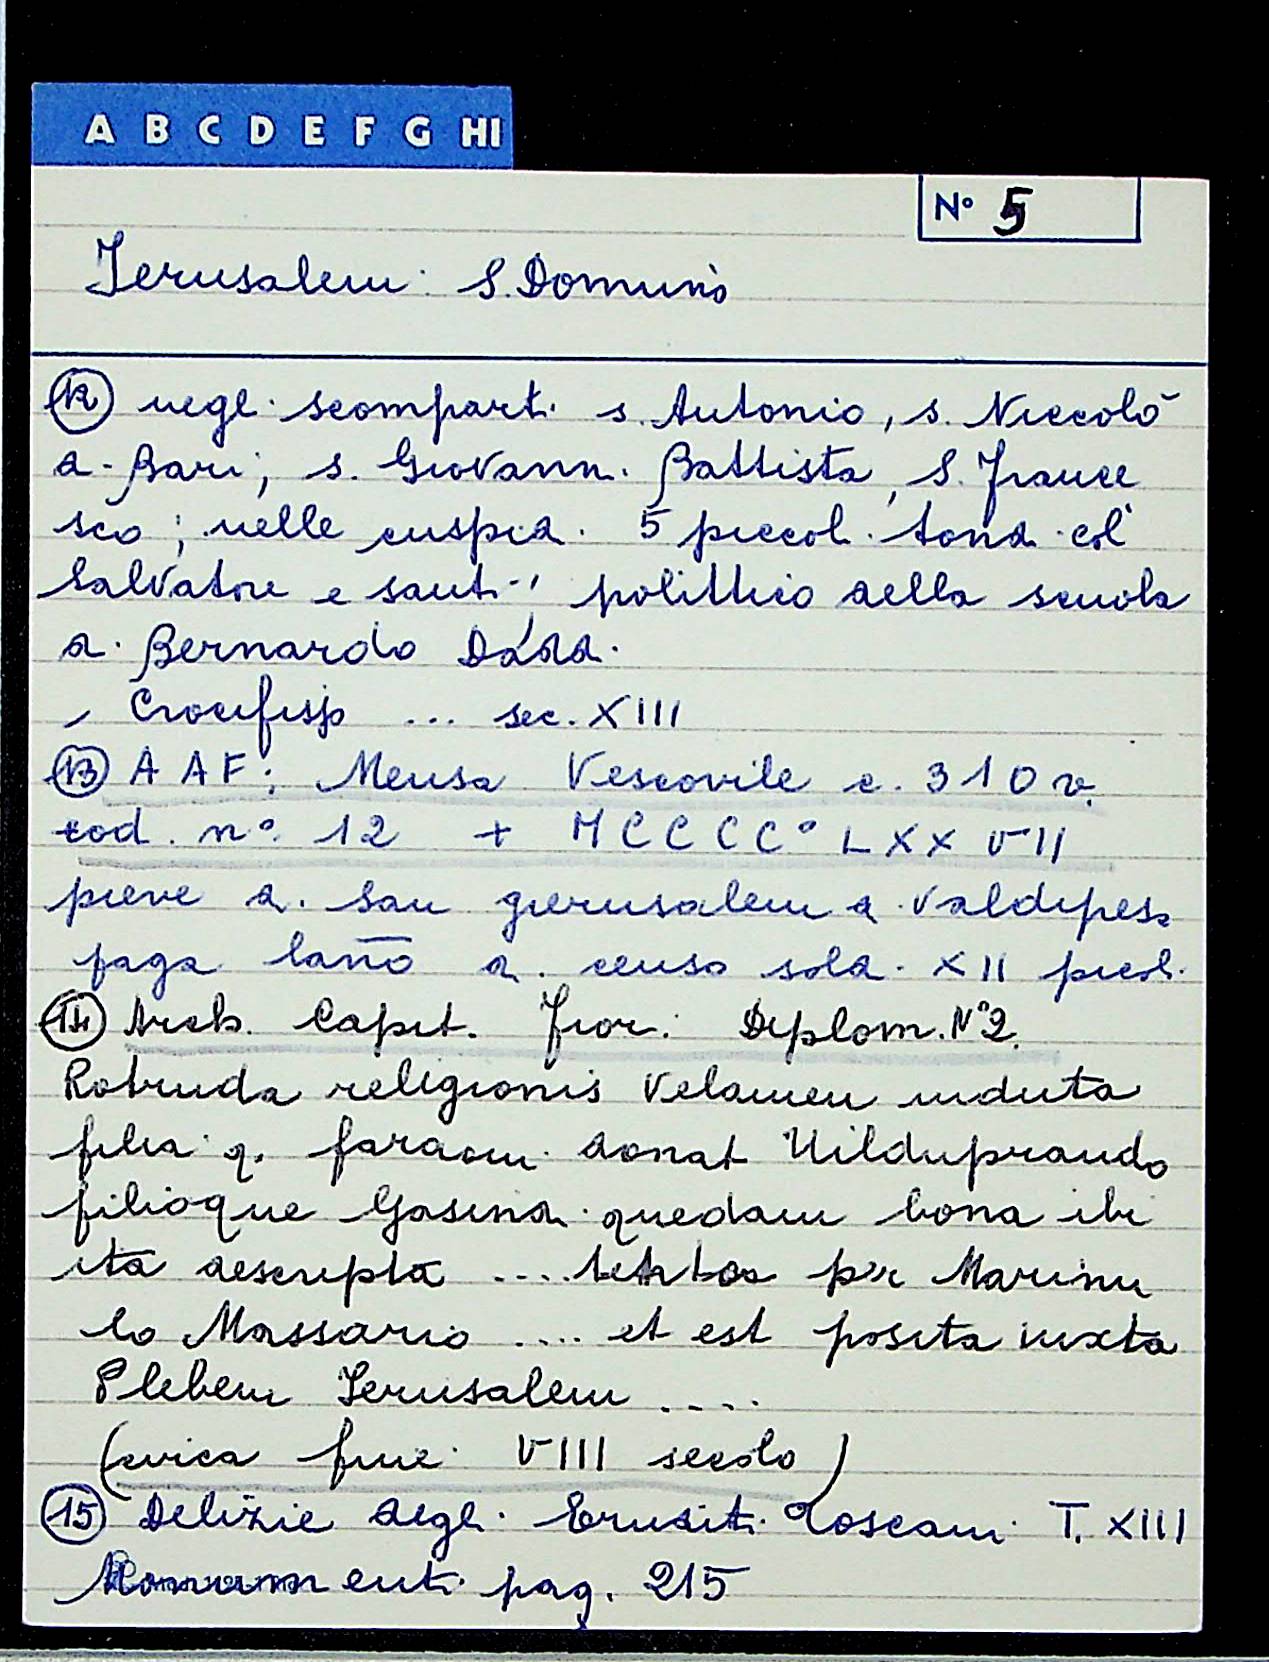 A B C D E F G HI
N° 5
Jerusalem: S. Donnino
(12) negli scomparti s. Antonio, s. Niccolò
di Bari; s. Giovanni Battista, S. France
sco; nelle cuspidi 5 piccoli tondi col
Salvatore e santi, polittico della scuola
di Bernardo Daddi.
, Crocifisso ... sec. XIII
(13) A A F: Mensa Vescovile c. 310 v.
cod. n° 12 + MCCCC° LXXVII
pieve di san gierusalem di Valdipesa
paga lanno di censo soldi XII picoli
(14) Arch. Capit. Fior: Diplom. N° 2.
Rotruda religionis velamen induta
filia q. faraoni donat Hilduprando
filioque Gasindi quedam bona ibi
ita descripta .... per Marinu
lo Massario .... et est posita iuxta
Plebem Jerusalem ....
(circa fine VIII secolo)
(15) Delizie degli Eruditi Toscani T. XIII
Monumenti pag. 215